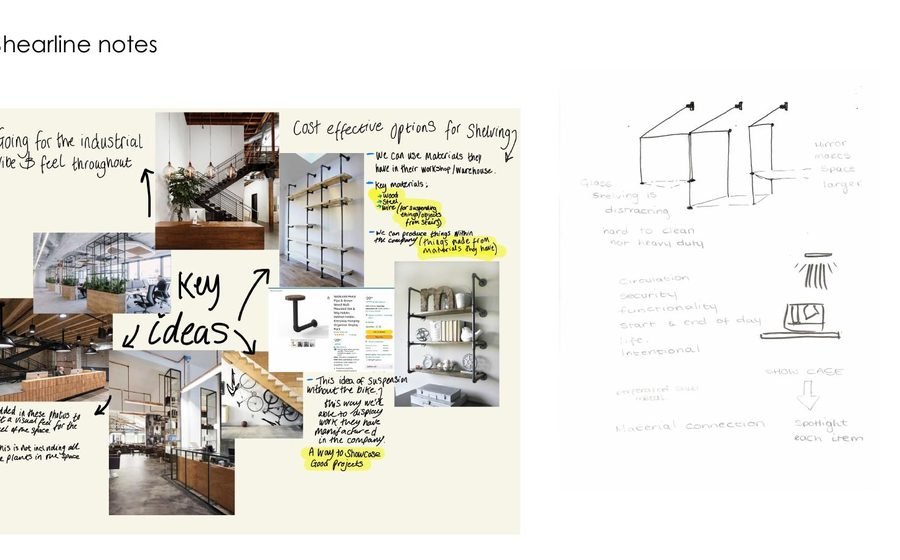 Shearline notes
Going for the industrial
vibe & feel throughout
Cost effective options for Shelving
- We can use Materials they
have in their workshop/warehouse.
- Key materials:
→ Wood
→ Steel
→ Wire (for suspending
things/objects
from stairs)
- We can produce things within
the company (things made from
materials they have)
Key
ideas
- This idea of suspension
without the bike,
this way we're
able to display
work they have
manufactured
in the company.
A way to showcase
Good projects
added in these photos to
get a visual feel
feel of the space. for the
this is not including all
the plants in the space
Mirror
makes
space
larger
Glass
Shelving is
distracting
hard to clean
not heavy duty
Circulation
security
functionality
Start & end of day
life.
Intentional
SHOW CASE
Material connection
Spotlight
each item